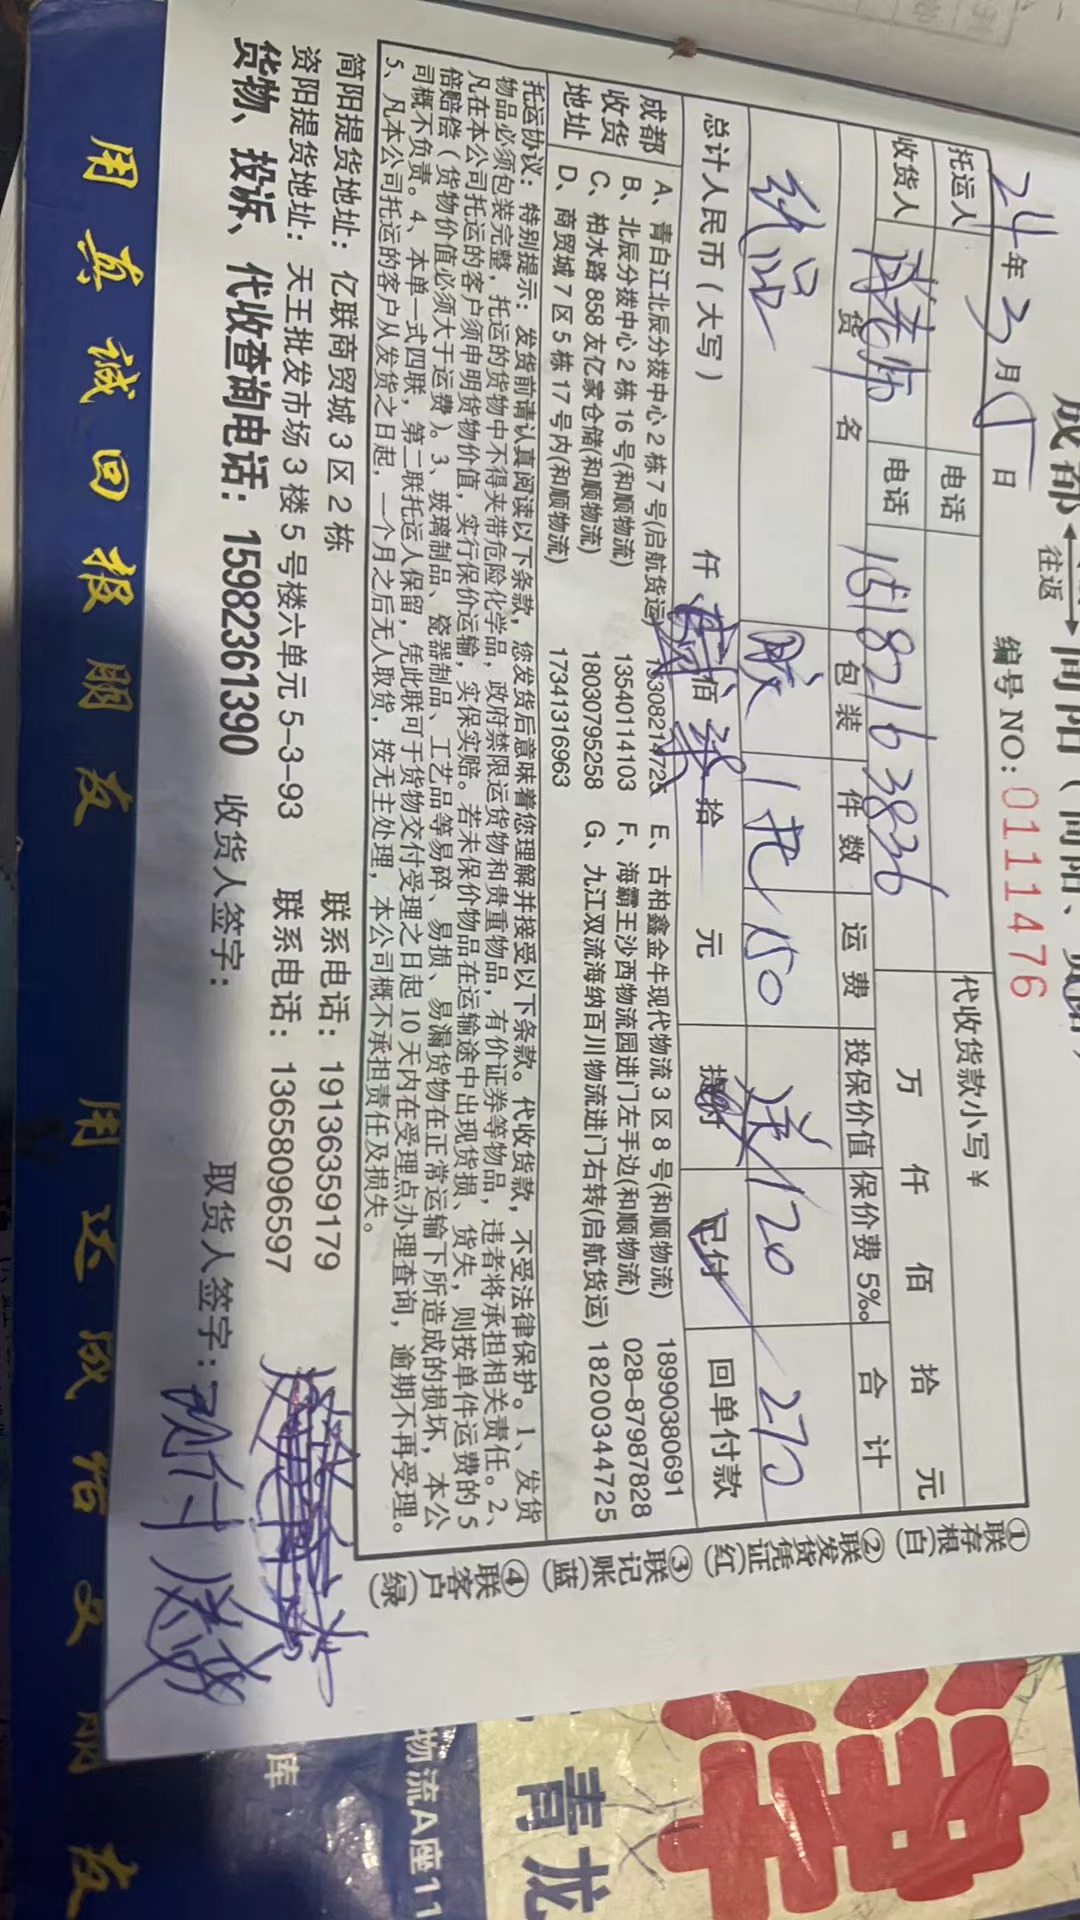 成都 往返 简阳（简阳、资阳
编号NO：0111476
24年3月 日
托运人 电话 代收货款小写¥
收货人 老师 电话 15182163836 万 仟 佰 拾 元
货 名 包装 件数 运费 投保价值 保价费5‰ 合计
纸品 1 150 送120 270
总计人民币（大写） 仟 贰佰 柒拾 元 提付 已付 回单付款
成都收货地址
A、青白江北辰分拨中心2栋7号(启航货运) 15308214725 E、古柏鑫金牛现代物流3区8号(和顺物流) 18990380691
B、北辰分拨中心2栋16号(和顺物流) 13540114103 F、海霸王沙西物流园进门左手边(和顺物流) 028-87987828
C、柏水路858友亿家仓储(和顺物流) 18030795258 G、九江双流海纳百川物流进门右转(启航货运) 18200344725
D、商贸城7区5栋17号内(和顺物流) 17341316963
托运协议：特别提示：发货前请认真阅读以下条款，您发货后意味着您理解并接受以下条款。代收货款，不受法律保护。1、发货
物品必须包装完整，托运的货物中不得夹带危险化学品，政府禁限运货物和贵重物品，有价证券等物品，违者将承担相关责任。2、
凡在本公司托运的客户须申明货物价值，实行保价运输，实保实赔。若未保价物品在运输途中出现货损、货失，则按单件运费的5
倍赔偿（货物价值必须大于运费）。3、玻璃制品、瓷器制品、工艺品等易碎、易损、易漏货物在正常运输下所造成的损坏，本公
司概不负责。4、本单一式四联，第二联托运人保留，凭此联可于货物交付受理之日起10天内在受理点办理查询，逾期不再受理。
5、凡本公司托运的客户从发货之日起，一个月之后无人取货，按无主处理，本公司概不承担责任及损失。
简阳提货地址：亿联商贸城3区2栋 联系电话：19136359179
资阳提货地址：天王批发市场3楼5号楼六单元5-3-93 联系电话：13658096597
货物、投诉、代收查询电话：15982361390 收货人签字： 取货人签字：
现付
①联存根(白)
②联发货凭证(红)
③联记账(蓝)
④联客户(绿)
用真诚回报朋友 用
友
青龙
物流A座11
库